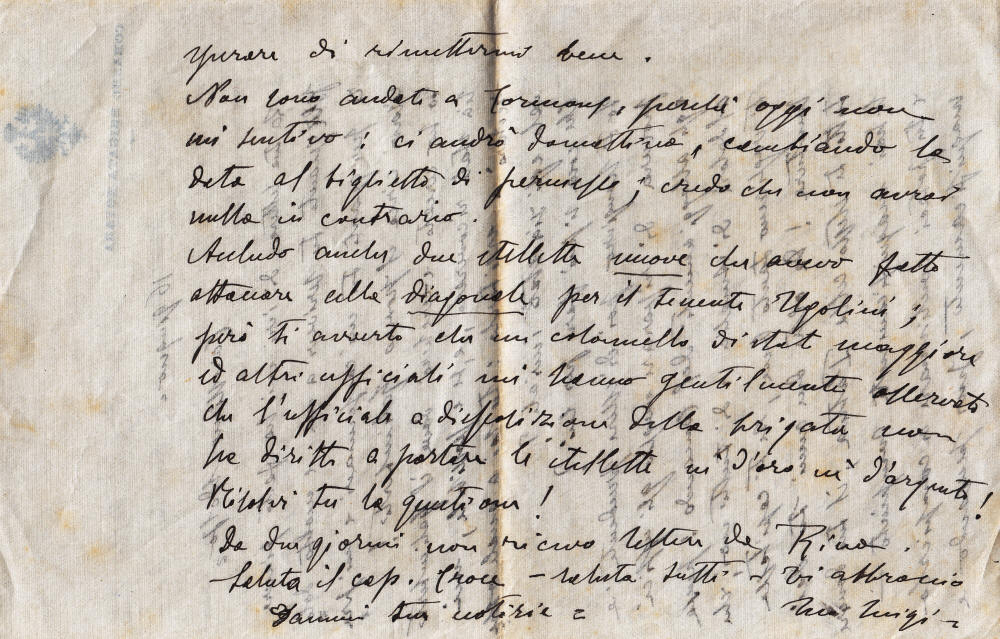 sperare di rimettermi bene.
Non sono andato a Cormons, perchè oggi non
mi sentivo: ci andrò domattina, cambiando la
data al biglietto di permesso; credo che non avrai
nulla in contrario.
Accludo anche due stellette nuove che avevo fatto
attaccare alla diagonale per il tenente Ugolini;
però ti avverto che un colonnello di stat maggiore
ed altri ufficiali mi hanno gentilmente osservato
che l'ufficiale a disposizione della brigata non
ha diritto a portare le stellette nè d'oro nè d'argento!
Risolvi tu la questione!
Da due giorni non ricevo lettere da Rina.
Saluta il cap. Croce - saluta tutti - Vi abbraccio
Dammi tue notizie = Luigi -